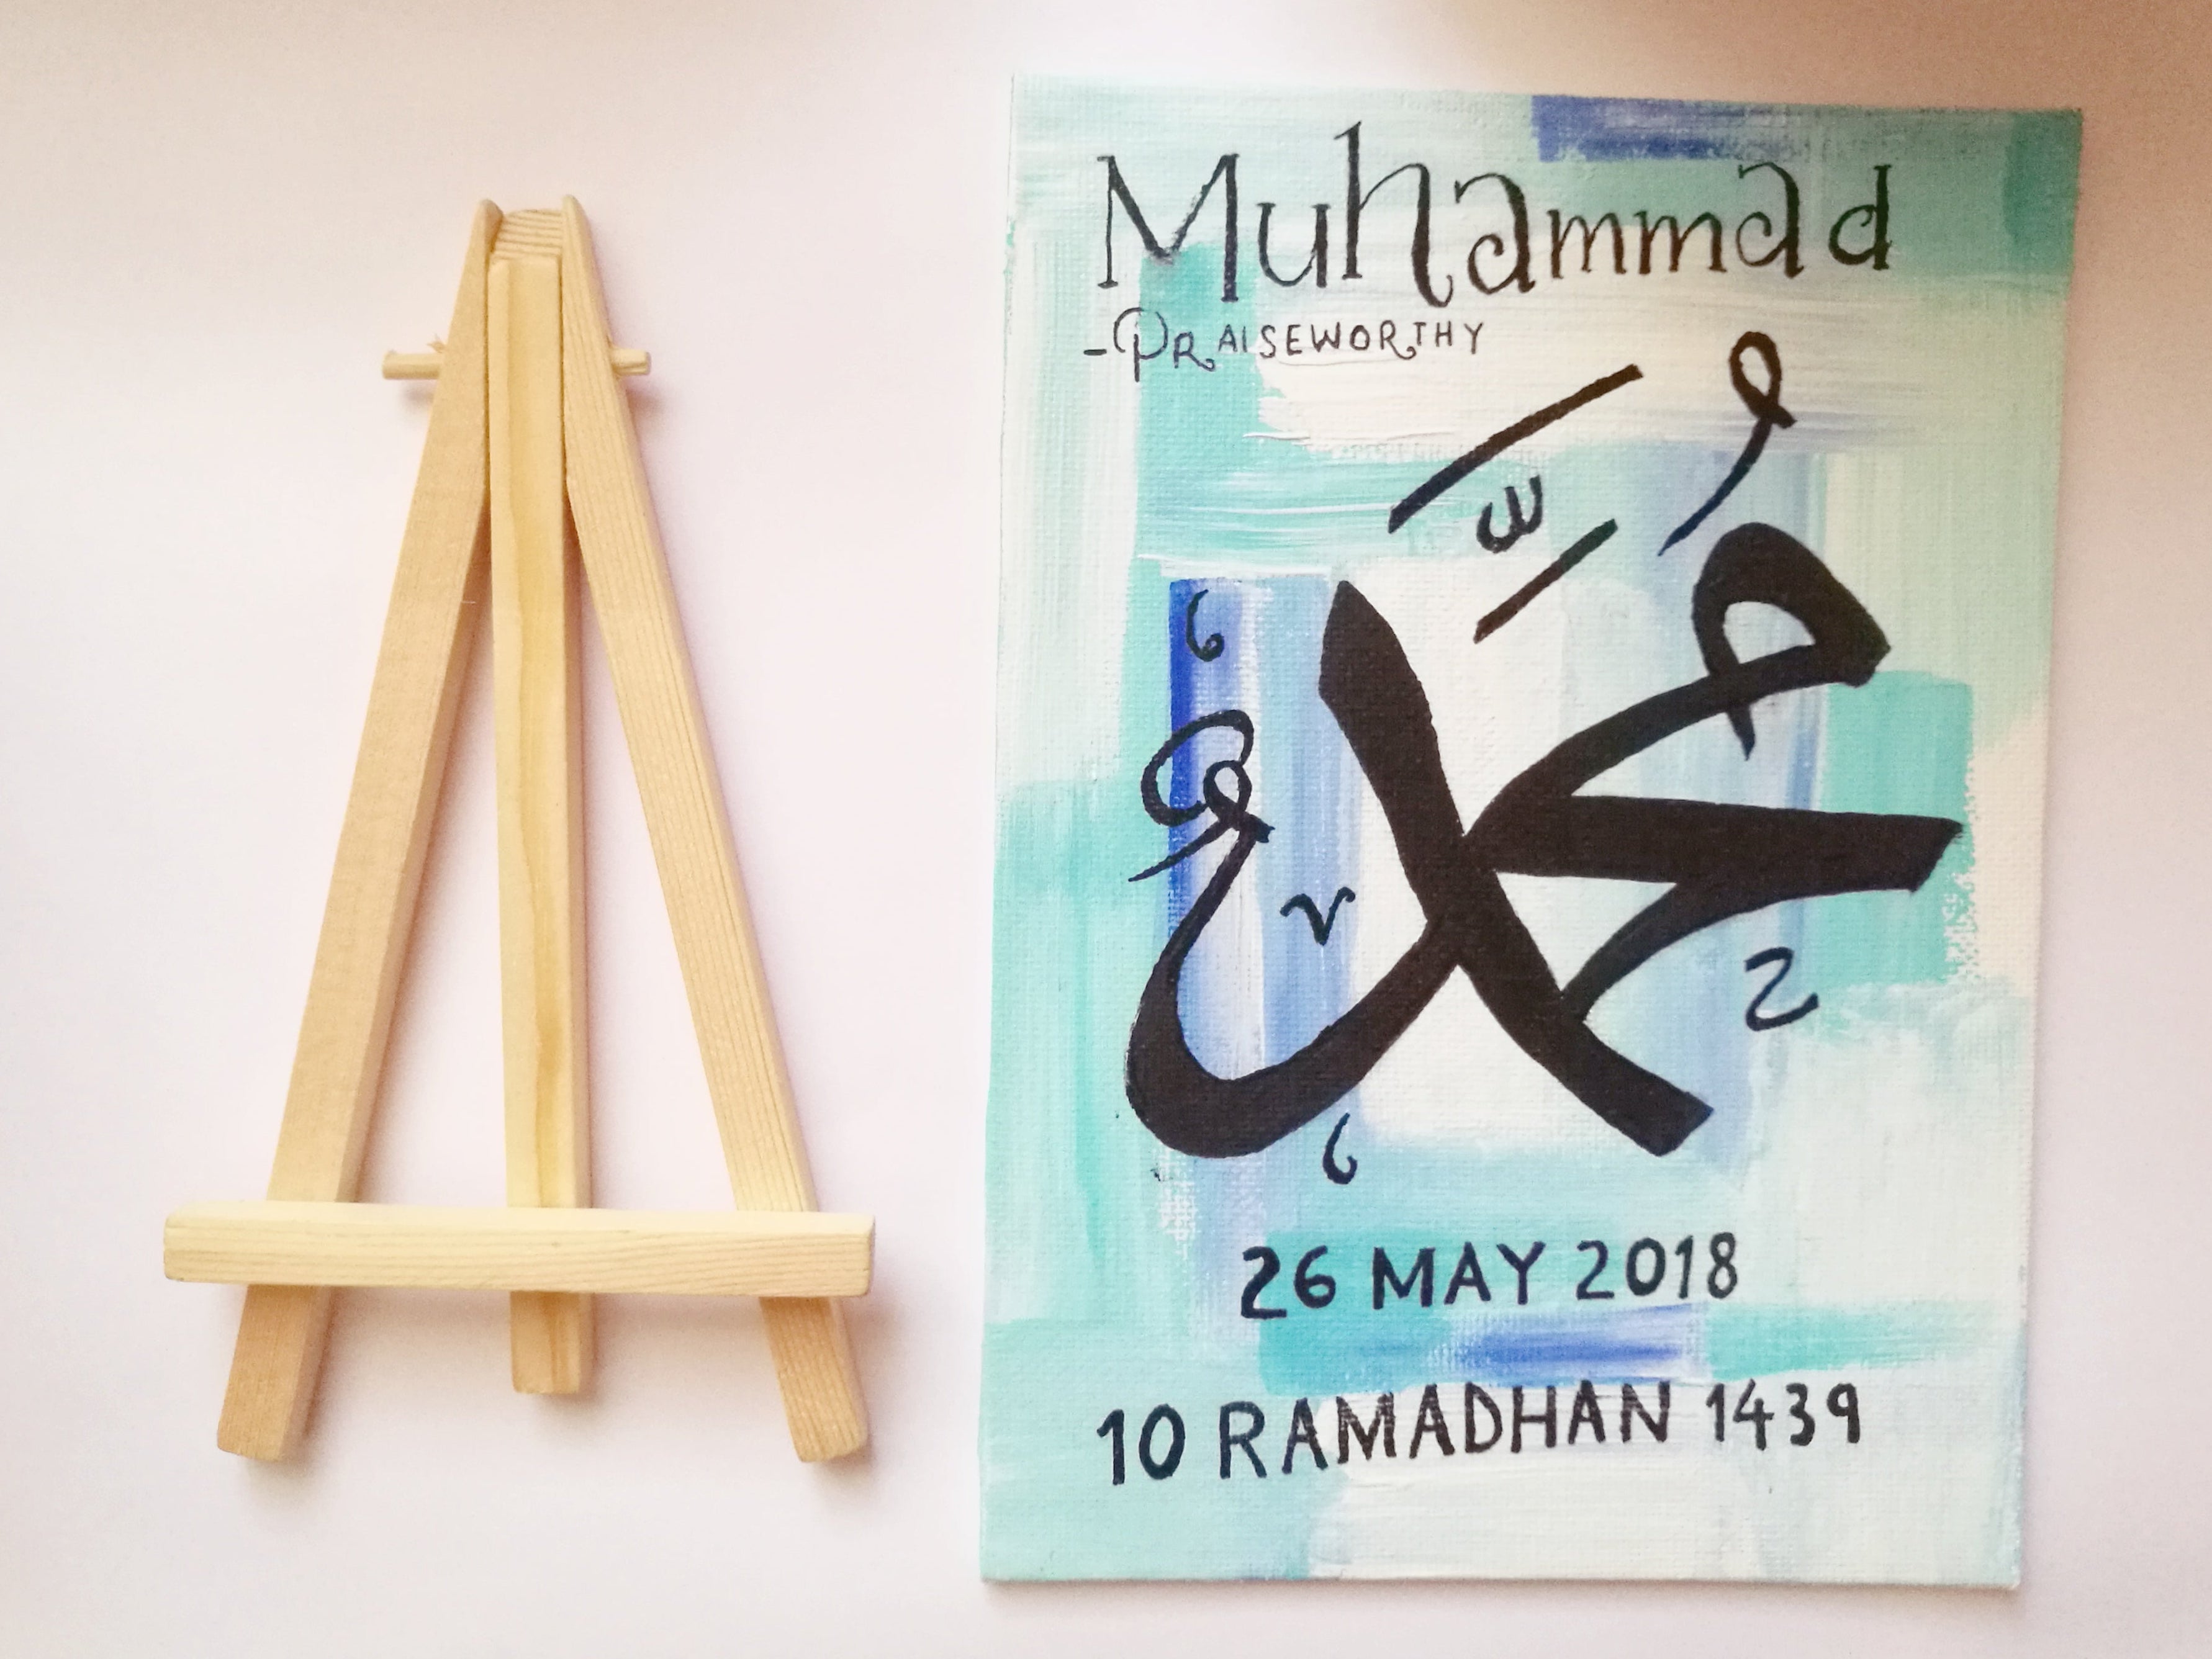 Muhammad
-PRAISEWORTHY
مُحَمَّد
26 MAY 2018
10 RAMADHAN 1439